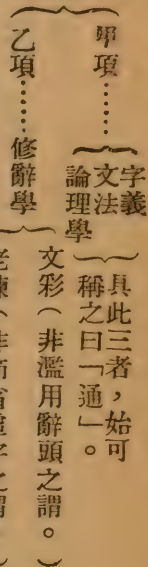 甲項……
字義
文法
論理學
具此三者，始可
稱之曰「通」。
乙項……修辭學
文彩（非濫用辭頭之謂。）